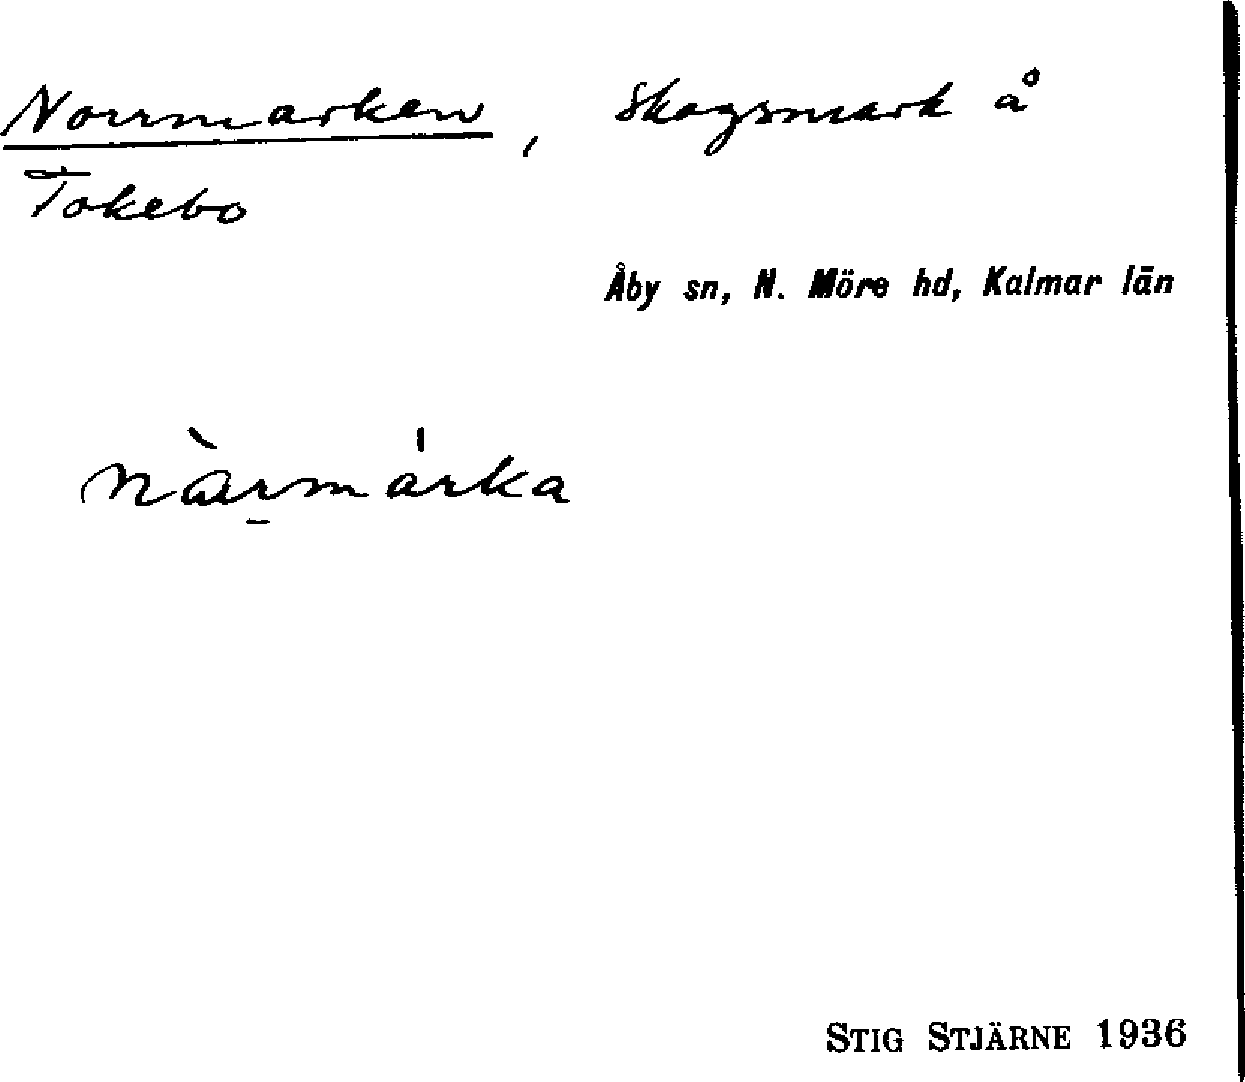 Norrmarken, Skogsmark å
Tokebo
Åby sn, N. Möre hd, Kalmar län
nàrmárka
STIG STJÄRNE 1936